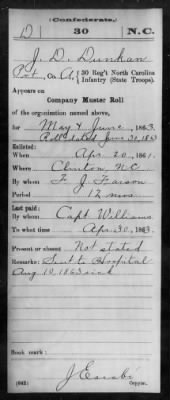 (Confederate.)
D 30 N.C.
J. D. Dunkan
Pvt, Co. A, 30 Reg't North Carolina
Infantry (State Troops).
Appears on
Company Muster Roll
of the organization named above,
for May & June, 1863.
Roll dated June 30, 1863
Enlisted:
When Apr. 20, 1861.
Where Clinton, N.C.
By whom F. J. Faison
Period 12 mos.
Last paid:
By whom Capt Williams
To what time Apr. 30, 1863.
Present or absent Not stated
Remarks: Sent to Hospital
Aug 10, 1863 sick
Book mark:
(642) Copyist.